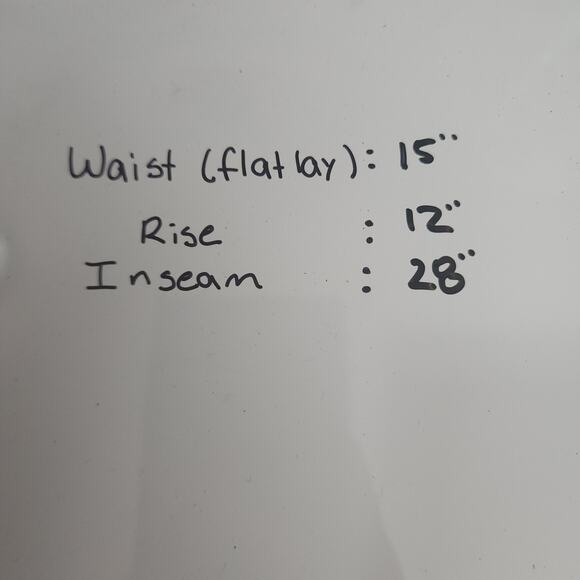 Waist (flat lay): 15"
Rise : 12"
Inseam : 28"